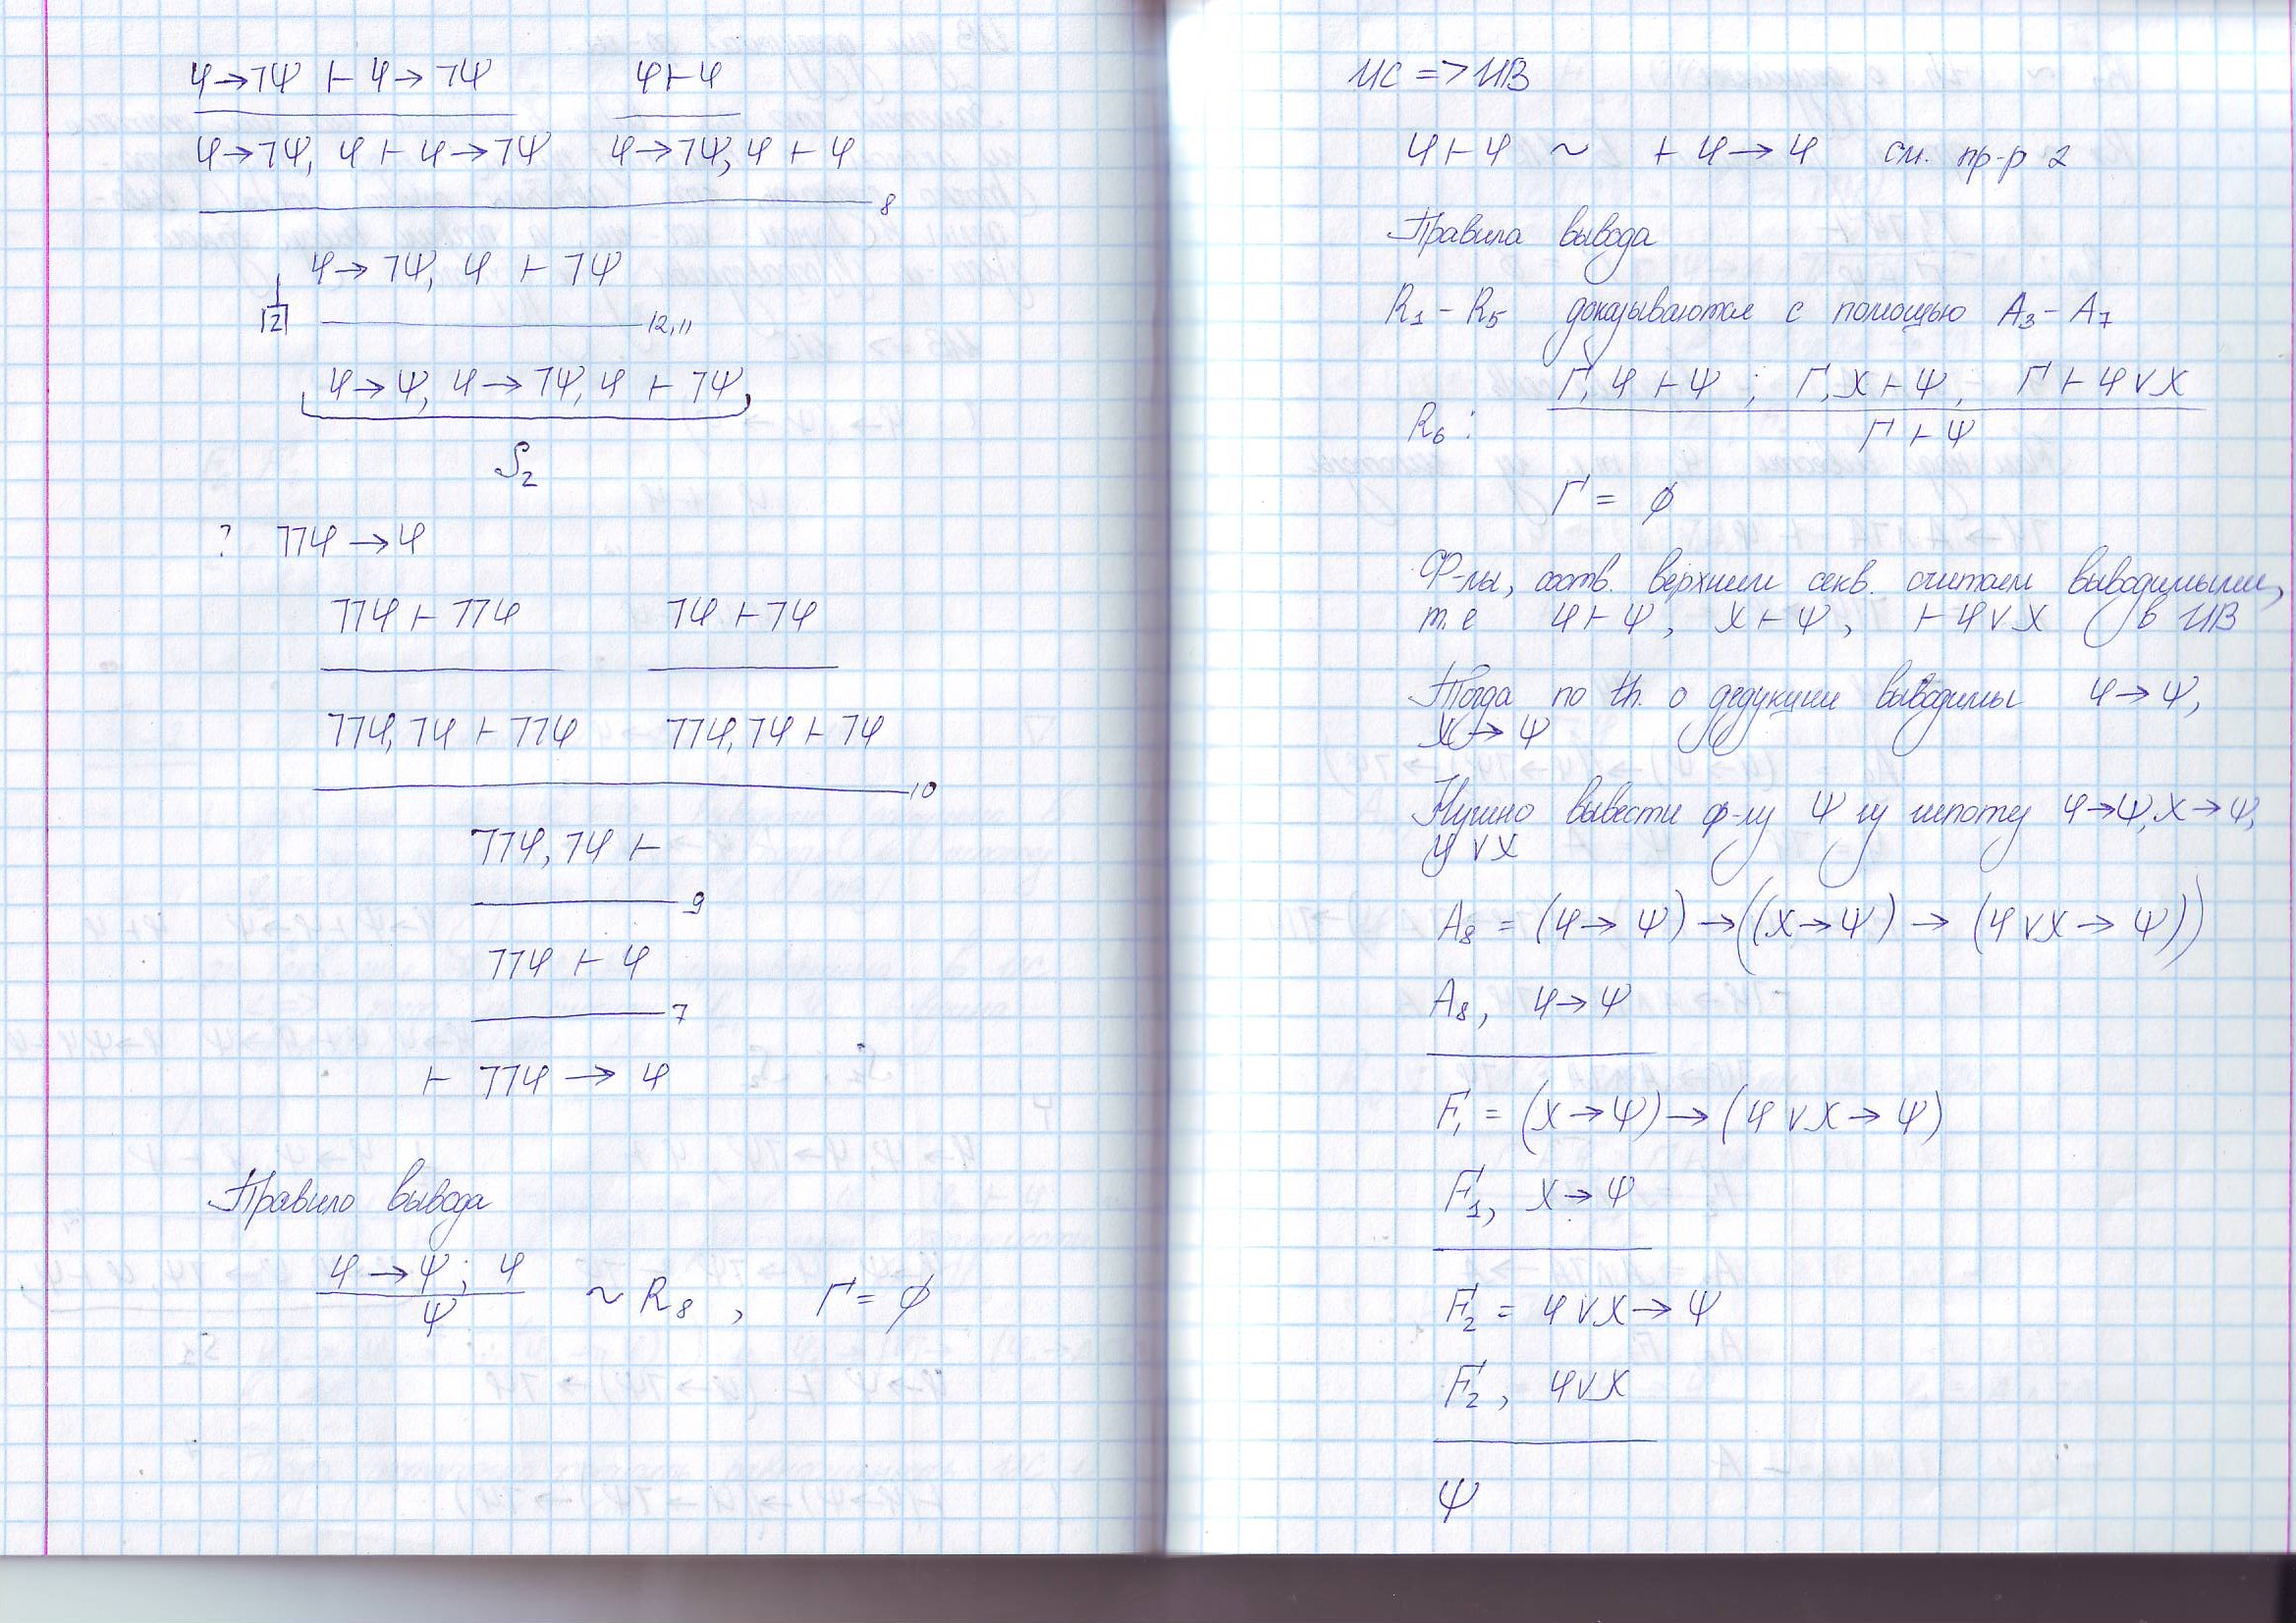 φ→¬ψ ⊢ φ→¬ψ φ⊢φ
φ→¬ψ, φ ⊢ φ→¬ψ φ→¬ψ, φ ⊢ φ
8
φ→¬ψ, φ ⊢ ¬ψ
12 12,11
φ→ψ, φ→¬ψ, φ ⊢ ¬ψ
S₂
? ¬¬φ→φ
¬¬φ ⊢ ¬¬φ ¬φ ⊢ ¬φ
¬¬φ, ¬φ ⊢ ¬¬φ ¬¬φ, ¬φ ⊢ ¬φ
10
¬¬φ, ¬φ ⊢
9
¬¬φ ⊢ φ
7
⊢ ¬¬φ → φ
Правило вывода
φ→ψ; φ
ψ
~ R₈, Γ = ∅
ИС => ИВ
φ⊢φ ~ ⊢φ→φ см. пр-р 2
Правила вывода
R₁ – R₅ доказываются с помощью A₃ – A₇
R₆:
Γ, φ ⊢ ψ; Γ, χ ⊢ ψ; Γ ⊢ φ∨χ
Γ ⊢ ψ
Γ = ∅
Ф-лы, соотв. верхним секв. считаем выводимыми,
т.е φ⊢ψ, χ⊢ψ, ⊢φ∨χ в ИВ
Тогда по th. о дедукции выводимы φ→ψ,
χ→ψ
Нужно вывести ф-лу ψ из гипотез φ→ψ, χ→ψ,
φ∨χ
A₈ = (φ→ψ)→((χ→ψ)→(φ∨χ→ψ))
A₈, φ→ψ
F₁ = (χ→ψ)→(φ∨χ→ψ)
F₁, χ→ψ
F₂ = φ∨χ→ψ
F₂, φ∨χ
ψ